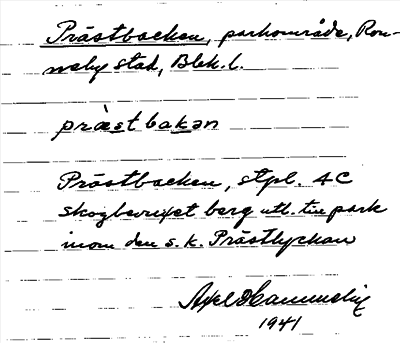 Prästbacken, parkområde, Ron-
neby stad, Blek. l.
præ̀st bakən
Prästbacken, stpl. 4C
skogbevuxet berg utl. till park
inom den s. k. Prästlyckan
Axel
1941